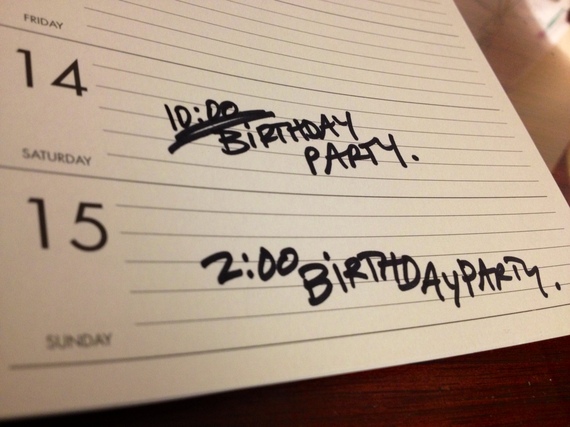 FRIDAY
14
10:00
BIRTHDAY
PARTY.
SATURDAY
15
2:00 BIRTHDAY PARTY.
SUNDAY